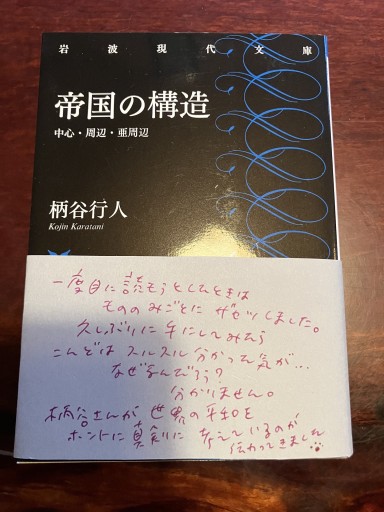 岩波現代文庫
帝国の構造
中心・周辺・亜周辺
柄谷行人
Kojin Karatani
一度目に読もうとしたときは
もののみごとに ザセツしました。
久しぶりに手にしてみたら
こんどは スルスル分かった気が…
なぜなんだろう?
分かりません。
柄谷さんが 世界の平和を
ホントに真剣に 考えているのが
伝わってきました